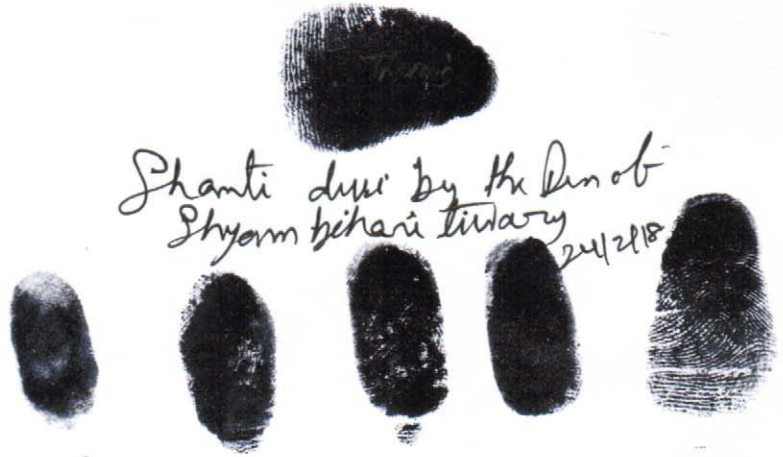 Shanti devi by the Pen of
Shyam bihari tiwary
24/2/18